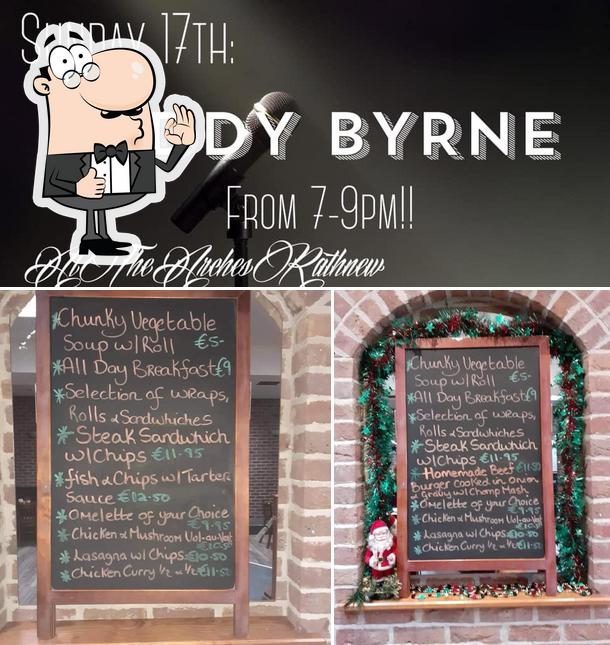 17th:
DDY BYRNE
From 7-9pm!!
At The Arches Rathnew
Chunky Vegetable
Soup w/ Roll €5-
All Day Breakfast €9
Selection of wraps,
Rolls & Sandwhiches
Steak Sandwhich
w/ Chips €11.95
fish & Chips w/ Tarter
Sauce €12.50
Omelette of your Choice
€9.95
Chicken & Mushroom Vol-au-Vent
€10.50
Lasagna w/ Chips €10.50
Chicken Curry ½ & ½ €11.50
Chunky Vegetable
Soup w/ Roll €5-
All Day Breakfast €9
Selection of wraps,
Rolls & Sandwhiches
Steak Sandwhich
w/ Chips €11.95
Homemade Beef €11.50
Burger Cooked in Onion
& Gravy w/ Champ Mash
Omelette of your Choice
€9.95
Chicken & Mushroom Vol-au-Vent
Lasagna w/ Chips €10.50
Chicken Curry ½ & ½ €11.50